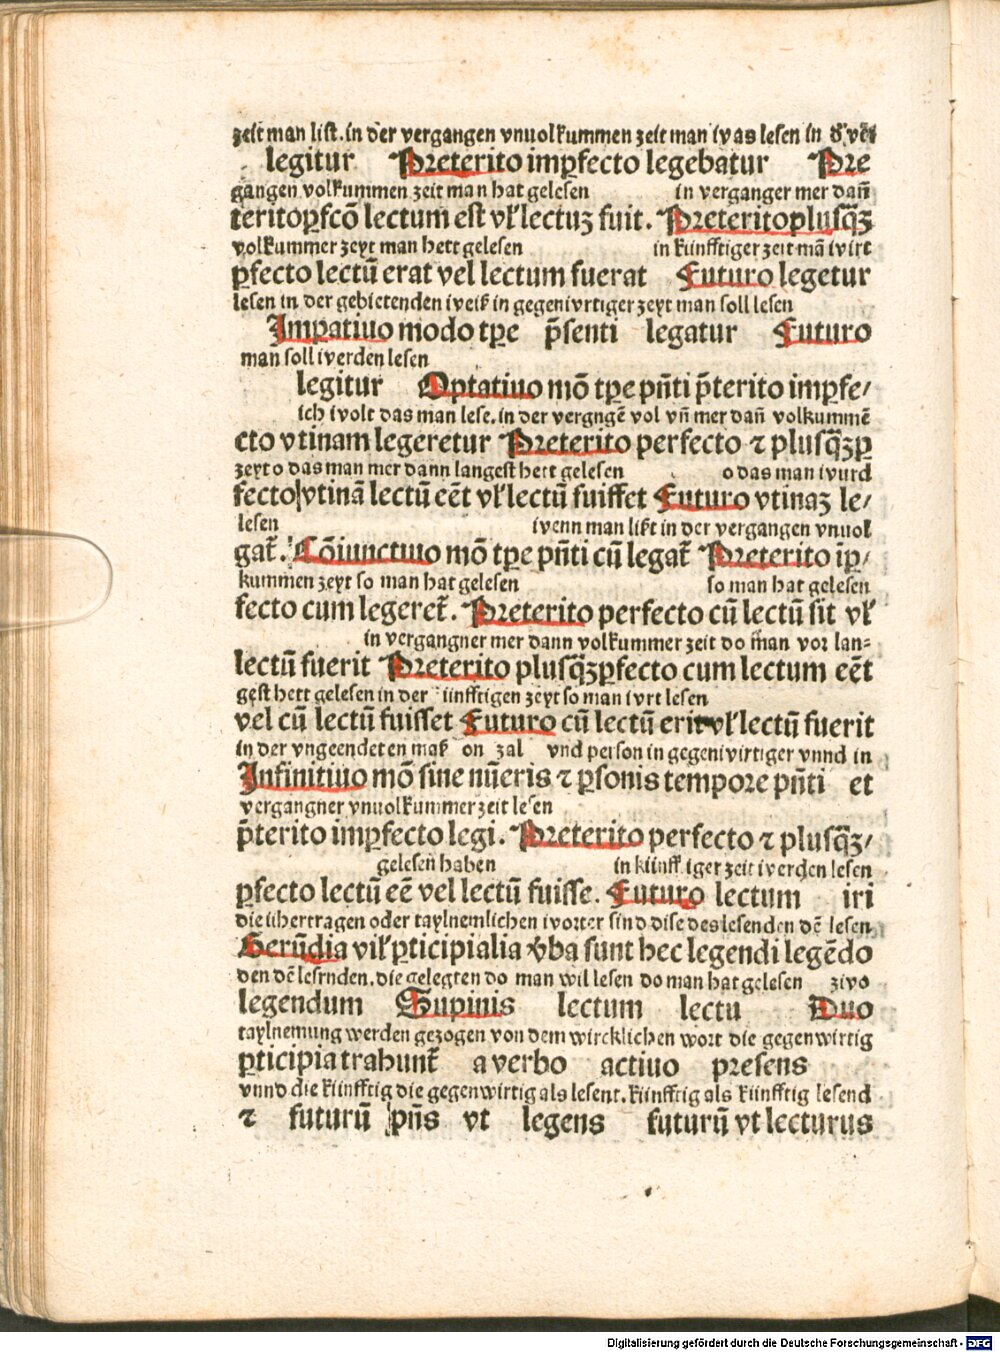 zeit man list. in der vergangen vnuolkummen zeit man was lesen in
legitur Preterito imꝑfecto legebatur Pre
gangen volkummen zeit man hat gelesen in verganger mer dañ
teritoꝑfcō lectum est vľ lectuꝫ fuit. Preteritoplusq̄ꝫ
volkummer zeyt man hett gelesen in künfftiger zeit mā wirt
ꝑfecto lectū erat vel lectum fuerat Futuro legetur
lesen in der gebietenden weiß in gegenwrtiger zeyt man soll lesen
Imꝑatiuo modo tꝑe p̄senti legatur Futuro
man soll werden lesen
legitur Optatiuo mō tꝑe pn̄ti p̄terito imꝑfe/
ich wolt das man lese. in der vergngē vol vn̄ mer dañ volkummē
cto vtinam legeretur Preterito perfecto ⁊ plusq̄ꝫꝑ
zeyt o das man mer dann langest hett gelesen o das man wurd
fecto vtinā lectū eēt vľ lectū fuisset Futuro vtinaꝫ le/
lesen wenn man lißt in der vergangen vnuol
gat̄. Cōiunctiuo mō tꝑe pn̄ti cū legat̄ Preterito īꝑ/
kummen zeyt so man hat gelesen so man hat gelesen
fecto cum legeret̄. Preterito perfecto cū lectū sit vľ
in vergangner mer dann volkummer zeit do man vor lan-
lectū fuerit Preterito plusq̄ꝫꝑfecto cum lectum eēt
gest hett gelesen in der ünfftigen zeyt so man wrt lesen
vel cū lectū fuisset Futuro cū lectū erit vľ lectū fuerit
in der vngeendeten maß on zal vnd person in gegenwirtiger vnnd in
Infinitiuo mō sine nūeris ⁊ ꝑsonis tempore pn̄ti et
vergangner vnuolkummer zeit lesen
p̄terito imꝑfecto legi. Preterito perfecto ⁊ plusq̄ꝫ/
gelesen haben in künff iger zeit werden lesen
ꝑfecto lectū eē vel lectū fuisse. Futuro lectum iri
die übertragen oder taylnemlichen worter sind dise des lesenden dē lesen
Gerūdia vil ꝑticipialia v̄ba sunt hec legendi legēdo
den dē lesrnden. die gelegten do man wil lesen do man hat gelesen zwo
legendum Supinis lectum lectu Duo
taylnemung werden gezogen von dem wircklichen wort die gegenwirtig
ꝑticipia trahunt̄ a verbo actiuo presens
vnnd die künfftig die gegenwirtig als lesent. künfftig als künfftig lesend
⁊ futurū pn̄s vt legens futurū vt lecturus
Digitalisierung gefördert durch die Deutsche Forschungsgemeinschaft - DFG